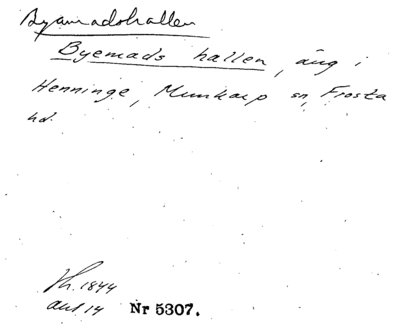 Byamadshallen
Byemads hallen, äng i
Henninge, Munkarp sn, Frosta
hd.
Th. 1844
akt 14 Nr 5307.